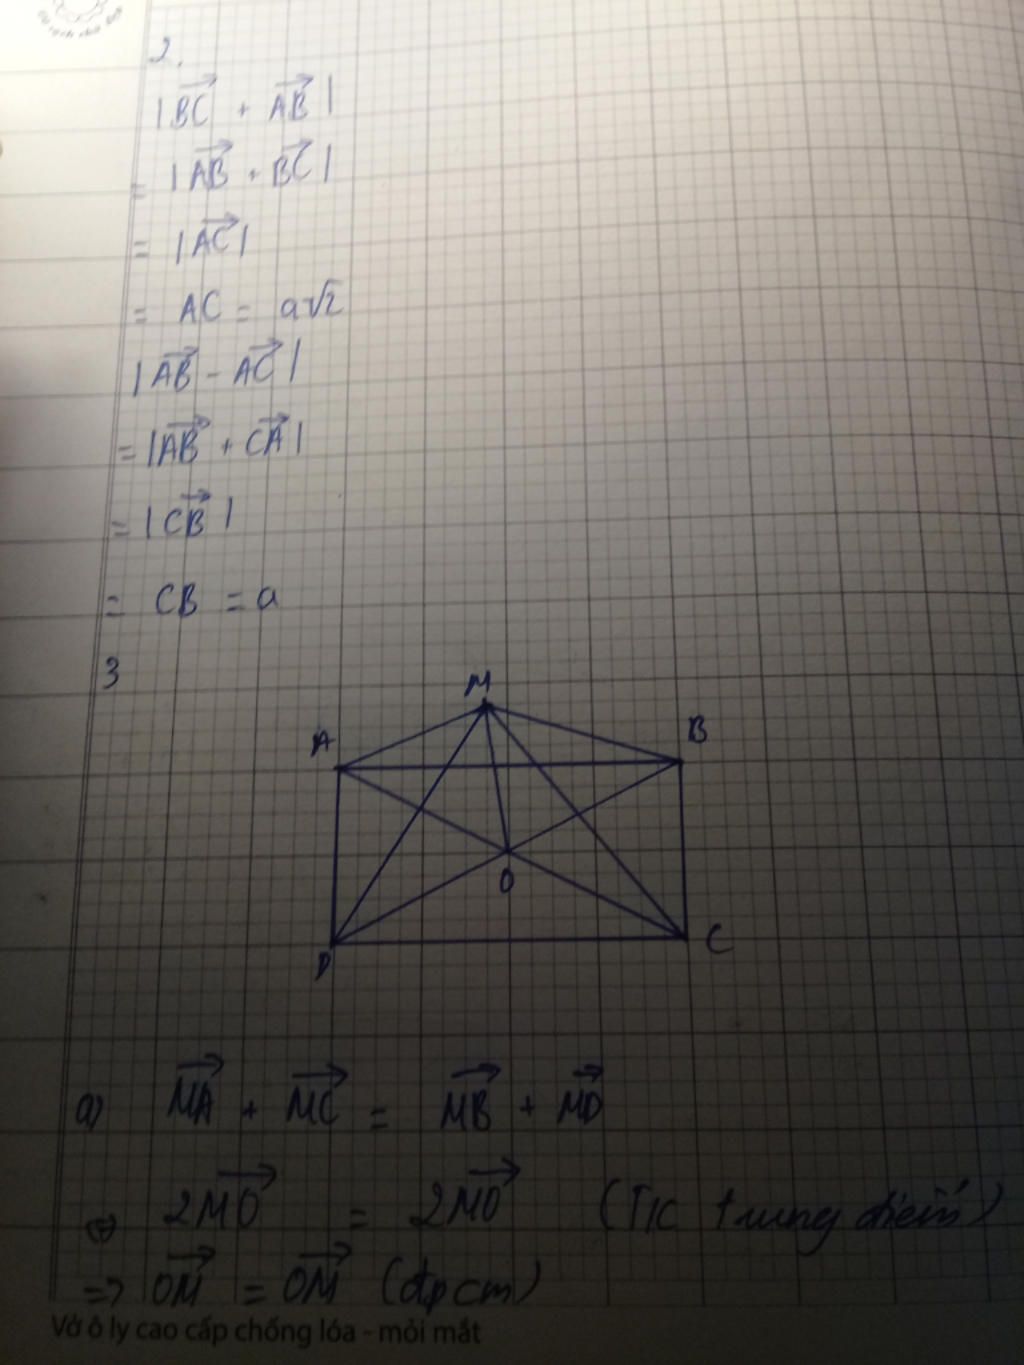 2.
|\overrightarrow{BC} + \overrightarrow{AB}|
= |\overrightarrow{AB} + \overrightarrow{BC}|
= |\overrightarrow{AC}|
= AC = a√2
|\overrightarrow{AB} - \overrightarrow{AC}|
= |\overrightarrow{AB} + \overrightarrow{CA}|
= |\overrightarrow{CB}|
= CB = a
3
M
A B
O
D C
a) \overrightarrow{MA} + \overrightarrow{MC} = \overrightarrow{MB} + \overrightarrow{MD}
⇔ 2\overrightarrow{MO} = 2\overrightarrow{MO} (T/c trung điểm)
=> \overrightarrow{OM} = \overrightarrow{OM} (đpcm)
Vở ô ly cao cấp chống lóa - mỏi mắt